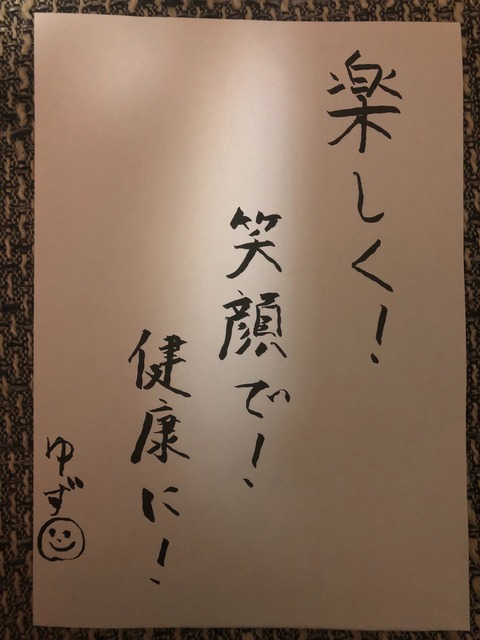 楽しく!
笑顔で!
健康に!
ゆず